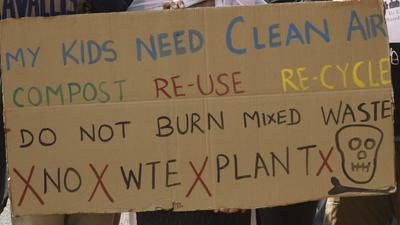 MY KIDS NEED CLEAN AIR
COMPOST RE-USE RE-CYCLE
DO NOT BURN MIXED WASTE
X NO X WTE X PLANT X